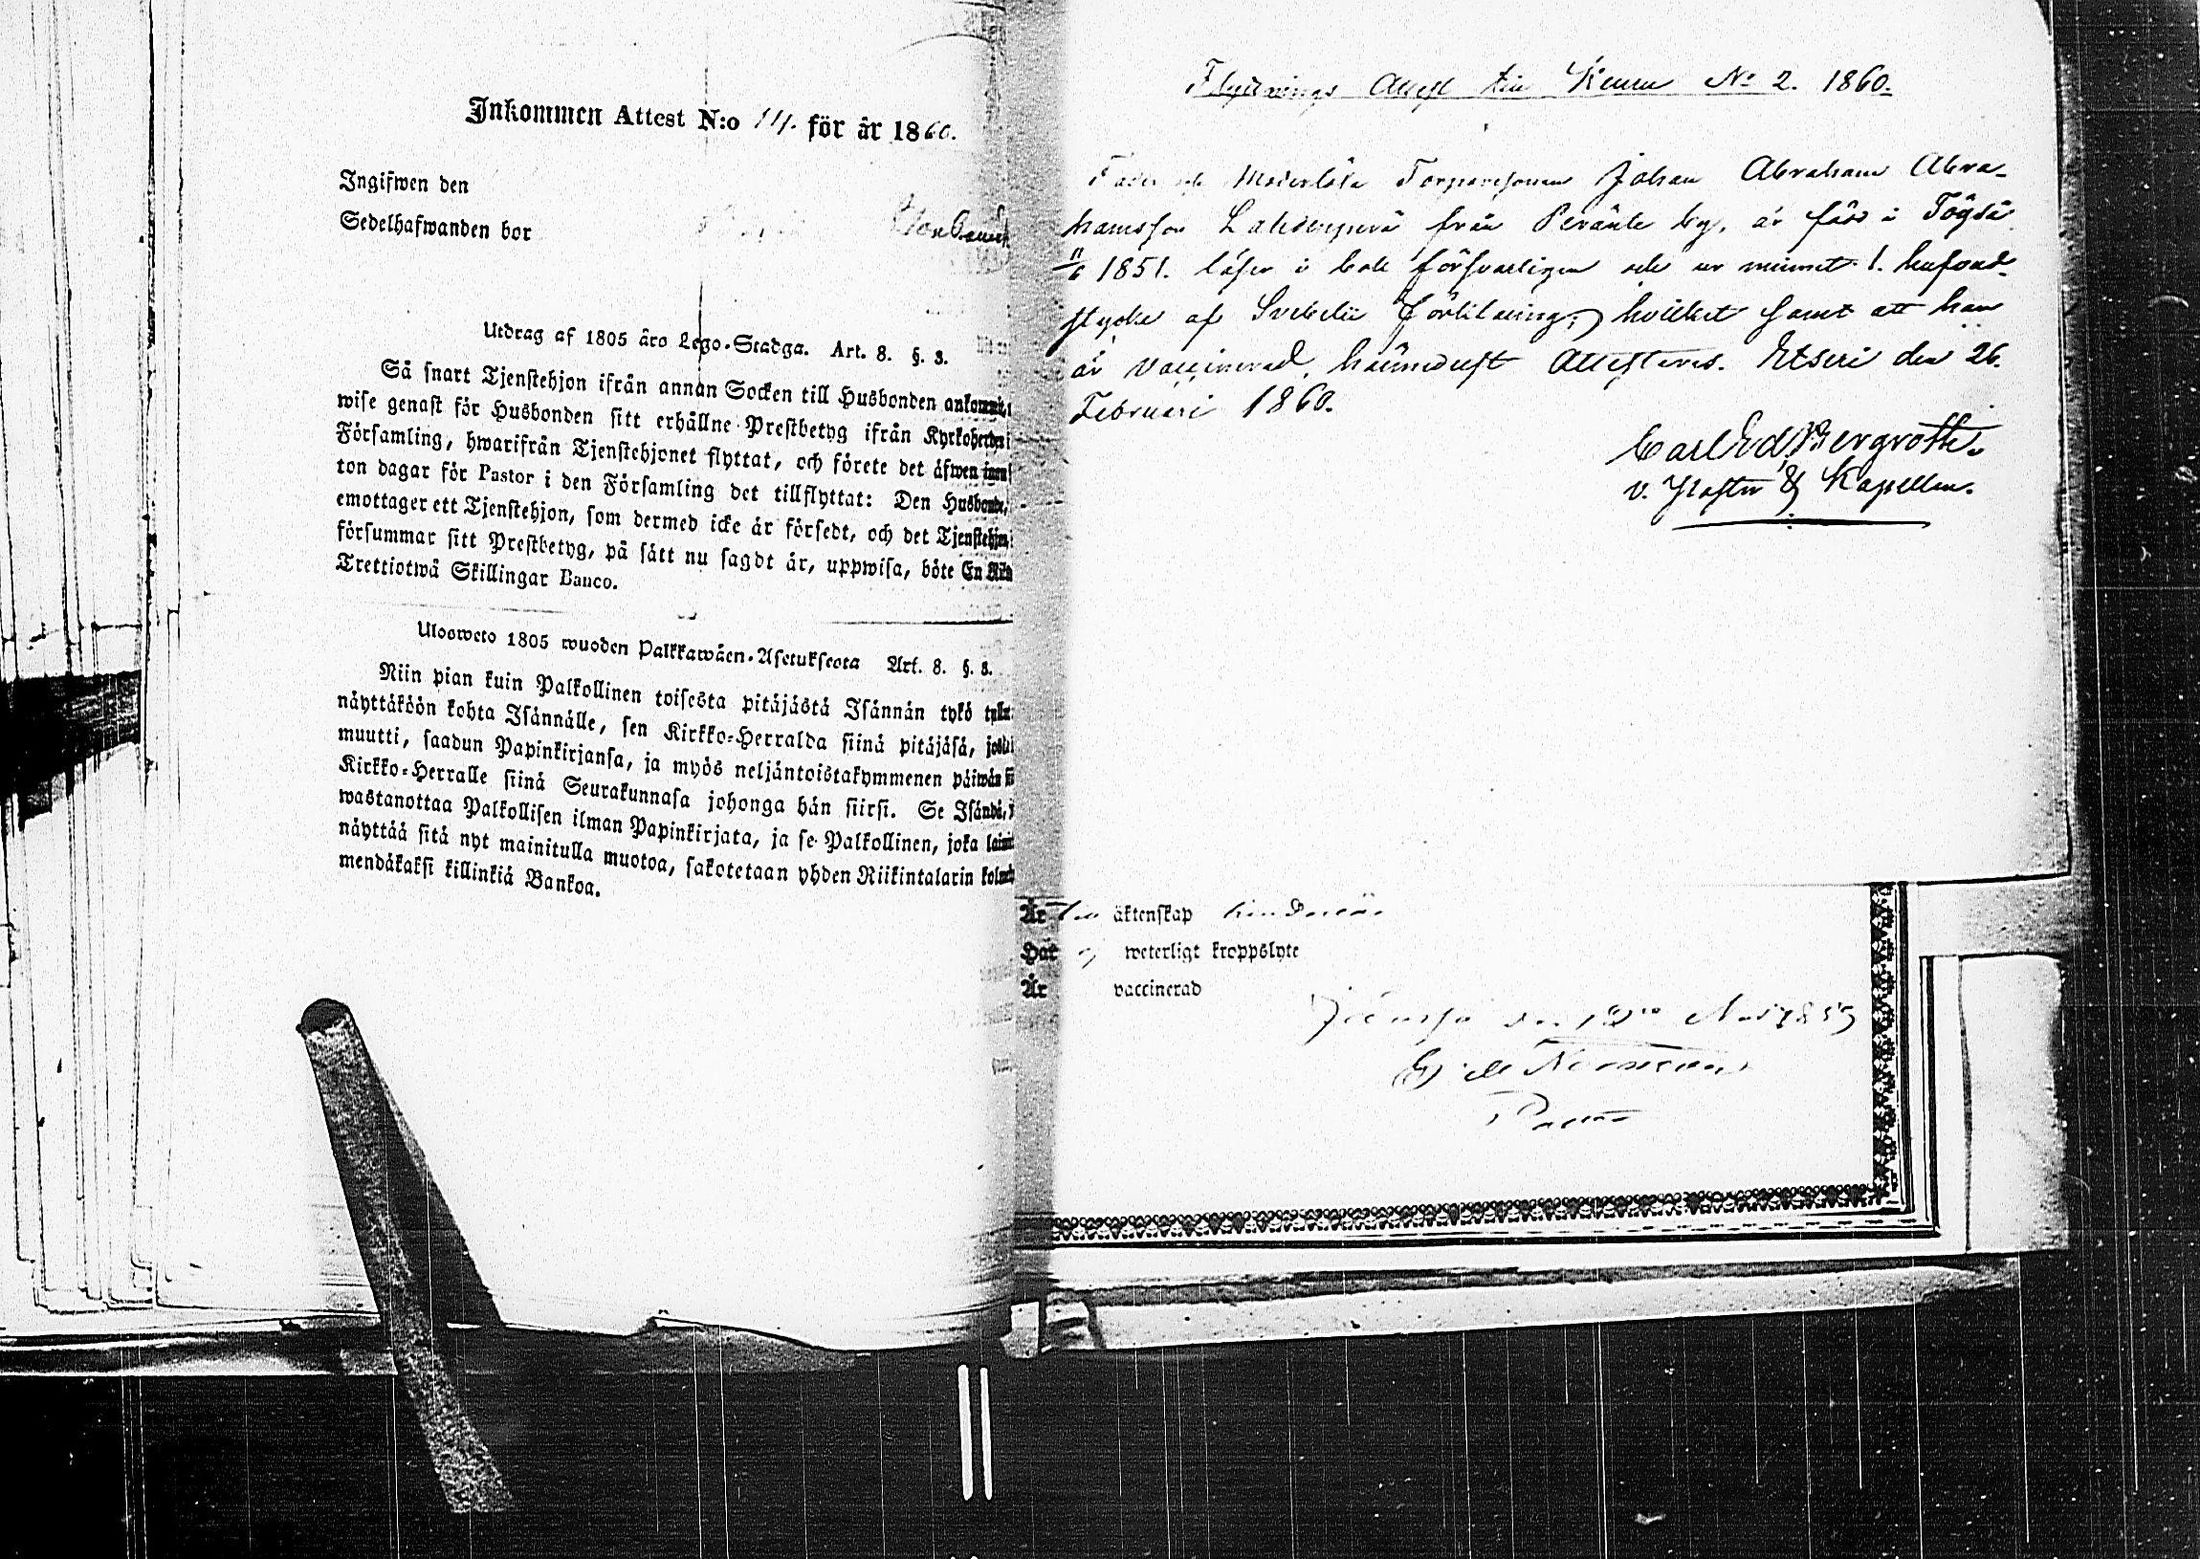 Inkommen Attest N:o 14. för år 1860.
Ingifwen den
Sedelhafwanden bor
Utdrag af 1805 års Lego-Stadga. Art. 8. §. 3.
Så snart Tjenstehjon ifrån annan Socken till Husbonden ankommit,
wise genast för Husbonden sitt erhållne Prestbetyg ifrån Kyrkoherden i
Församling, hwarifrån Tjenstehjonet flyttat, och förete det äfwen inom
ton dagar för Pastor i den Församling det tillflyttat: Den Husbonde,
emottager ett Tjenstehjon, som dermed icke är försedt, och det Tjenstehjon,
försummar sitt Prestbetyg, på sätt nu sagdt är, uppwisa, böte En Riks
Trettiotwå Skillingar Banco.
Ulosweto 1805 wuoden Palkkawäen-Asetuksesta Art. 8. §. 3.
Niin pian kuin Palkollinen toisesta pitäjästä Isännän tykö tulee
näyttäköön kohta Isännälle, sen Kirkko-Herralda siinä pitäjäsä, josta
muutti, saadun Papinkirjansa, ja myös neljäntoistakymmenen päiwän
Kirkko-Herralle siinä Seurakunnasa johonga hän siirsi. Se Isändä,
wastanottaa Palkollisen ilman Papinkirjata, ja se Palkollinen, joka
näyttää sitä nyt mainitulla muotoa, sakotetaan yhden Riikintalarin kolme
mendäkaksi killinkiä Bankoa.
Flyttnings Attest till Keuru No 2. 1860.
Fader och Moderlösa Torparesonen Johan Abraham Abra-
hamsson Lahdenperä från Peränte by, är född i Töysä
11/6 1851. läser i bok försvarligen och ur minnet 1. hufvud-
stycke af Svebelii förklaring; hvilket samt att han
är vaccinerad, härmedelst attesteras. Etseri den 26.
Februari 1860.
Carl Ed. Bergroth.
v. Pastor & Kapellan.
Är till äktenskap hinderlös
Har ej weterligt kroppslyte
Är vaccinerad